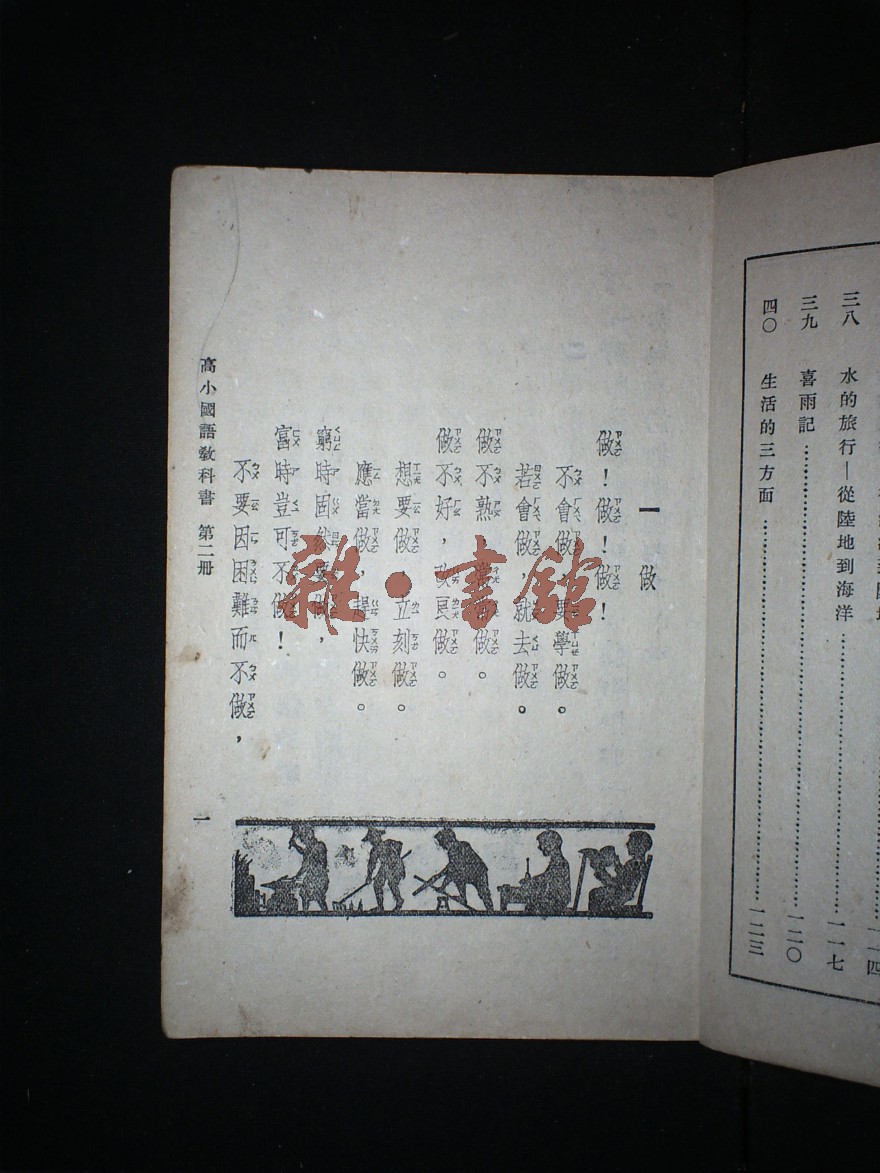 三八 水的旅行—從陸地到海洋……一一七
三九 喜雨記……一二〇
四〇 生活的三方面……一二三
一 做
做！做！做！
不會做，要學做。
若會做，就去做。
做不熟，常常做。
做不好，改良做。
想要做，立刻做。
應當做，趕快做。
窮時固然要做，
富時豈可不做！
不要因困難而不做，
高小國語教科書 第二冊
一
雜·書館